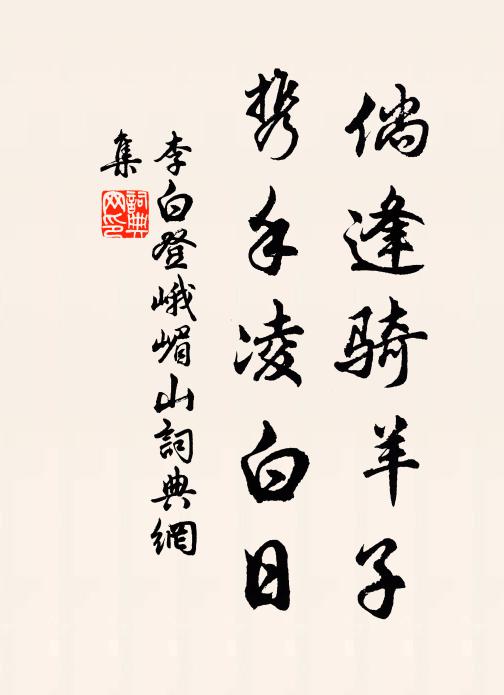 倘逢骑羊子
携手凌白日
李白登峨嵋山詞典網
集
詞典网印